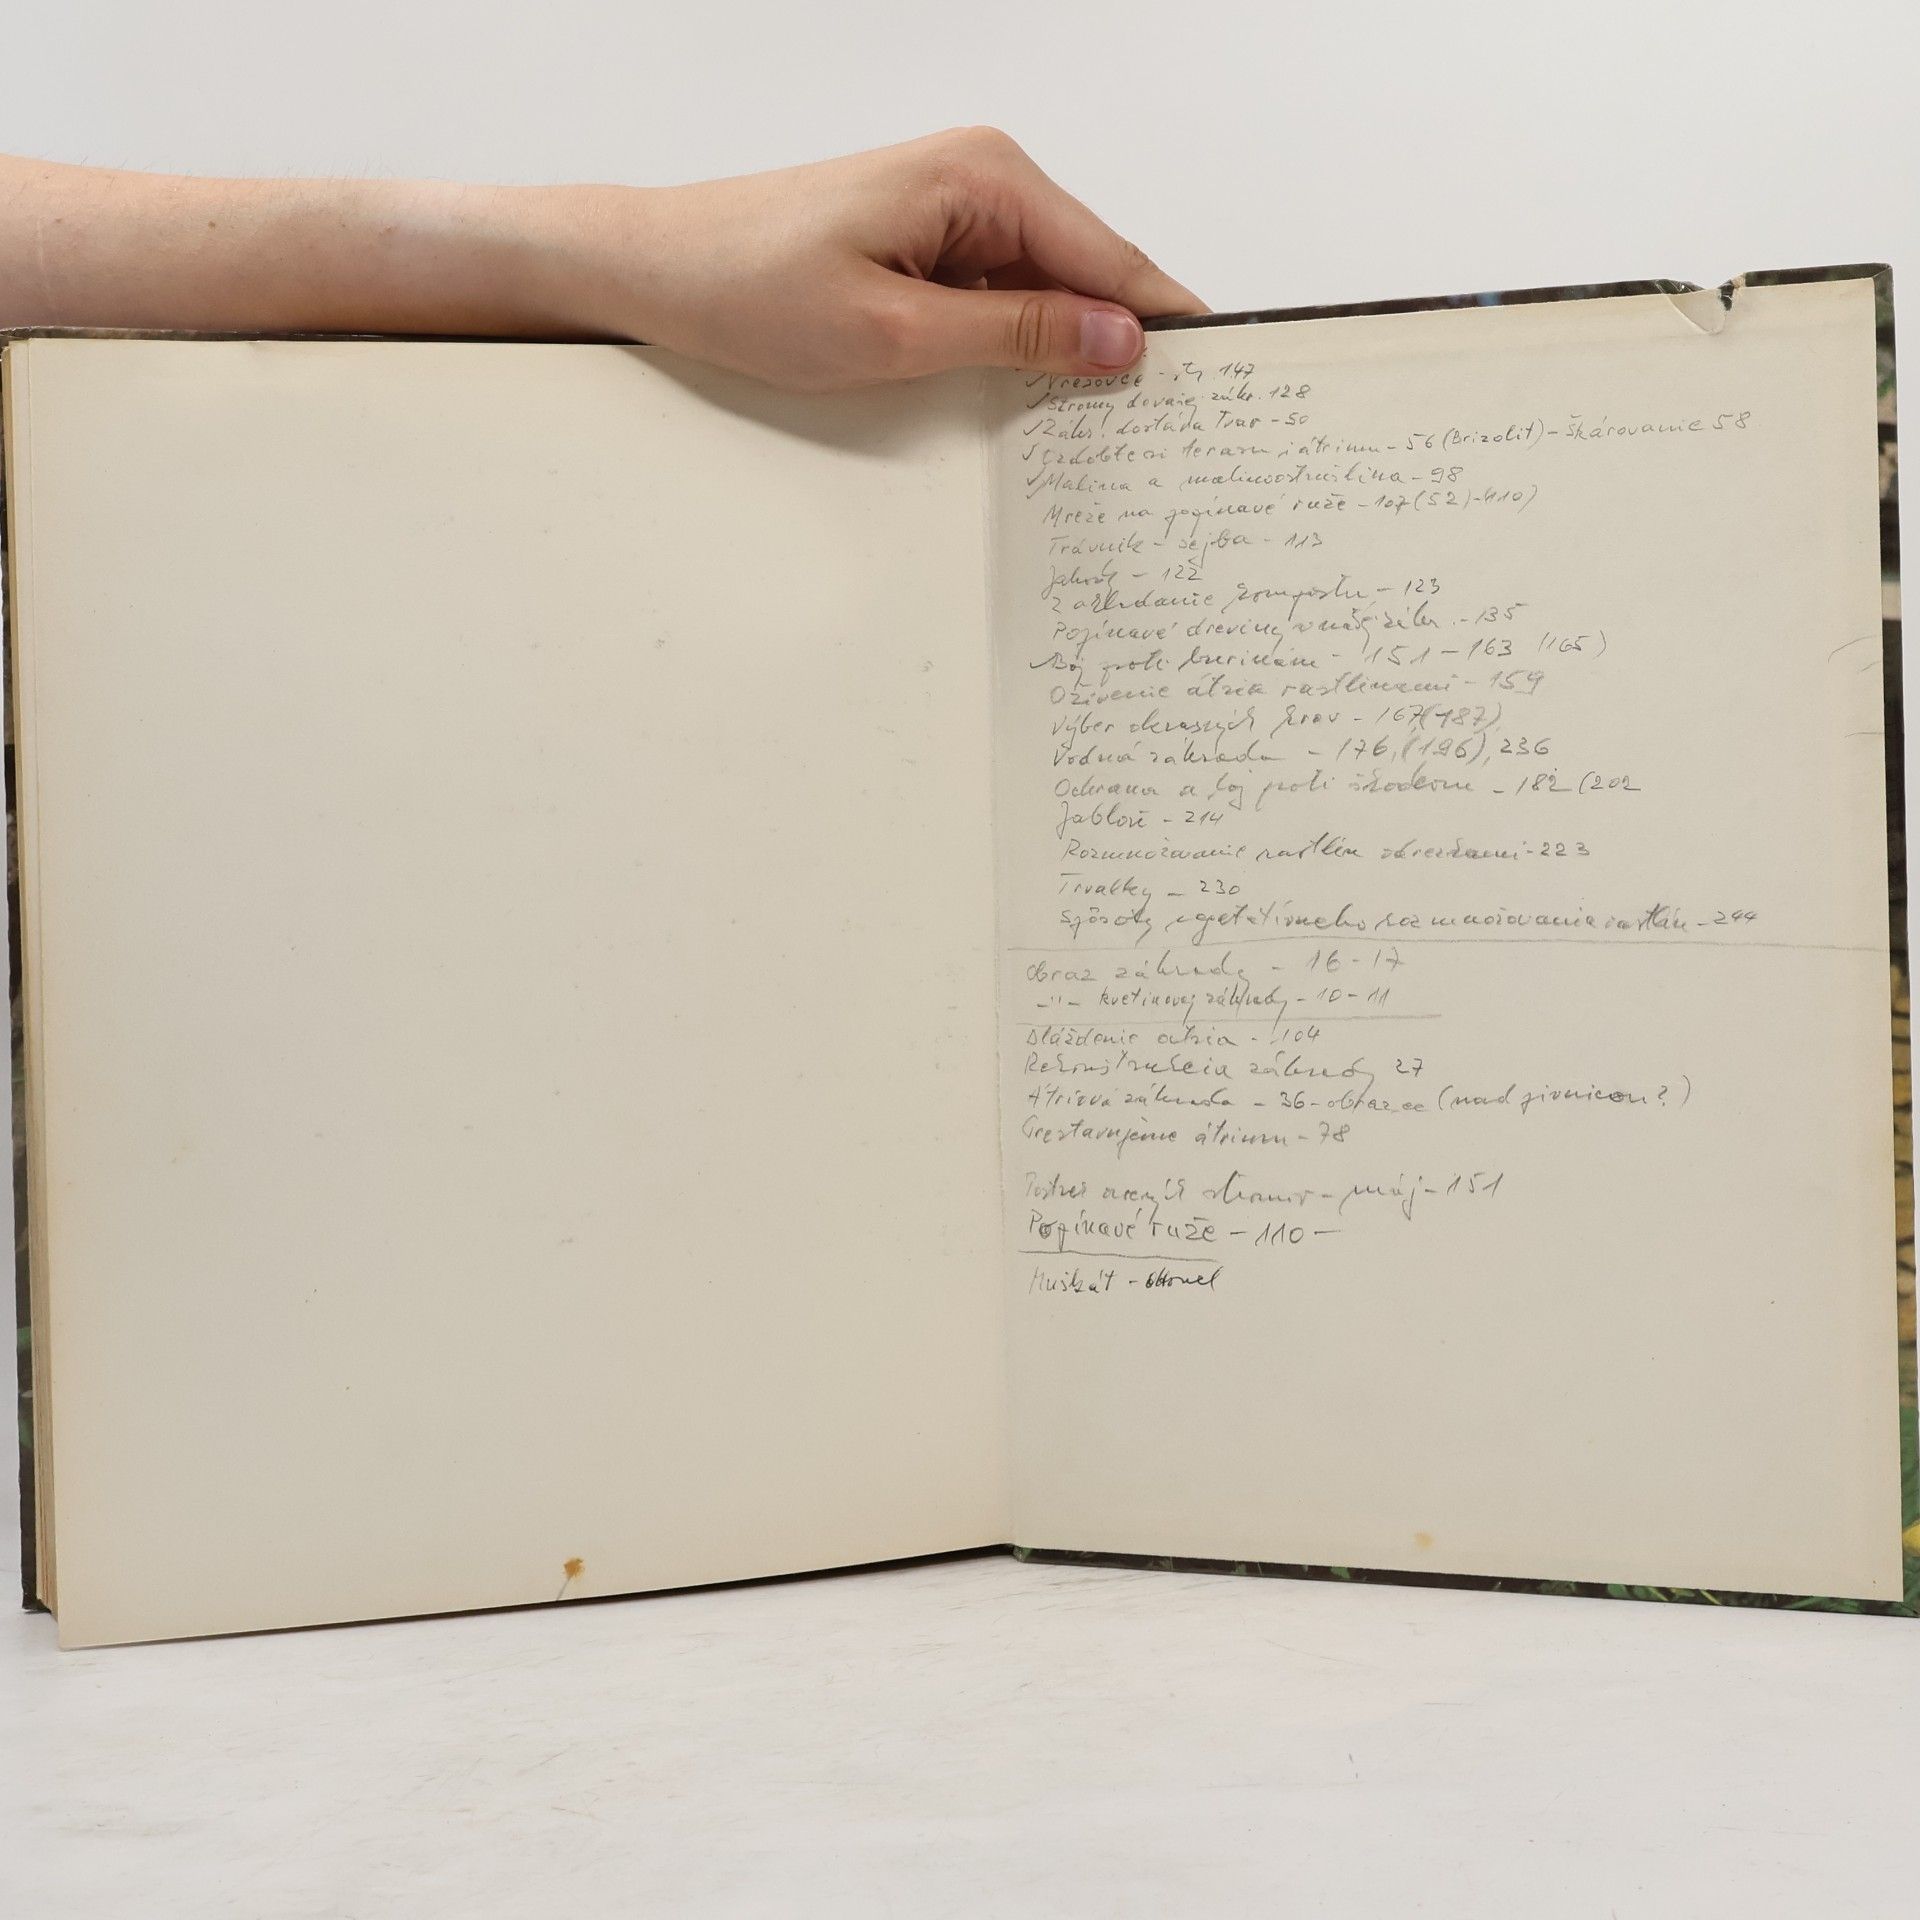 ✓Vresovce - str. 147
✓Stromy do vašej záhr. 128
✓Záhr. dostáva tvar - 50
✓Ozdobte si terasu i átrium - 56 (Brizolit) - škárovanie 58
✓Malina a malinoostružina - 98
Mreže na popínavé ruže - 107 (52) - 110)
Trávnik - sejba - 113
Jahody - 122
Zakladanie kompostu - 123
Popínavé dreviny v našej záhr. - 135
✓Boj proti burinám - 151 - 163 (165)
Oživenie átria rastlinami - 159
Výber okrasných krov - 167 (187)
Vodná záhrada - 176, (196), 236
Ochrana a boj proti škodcom - 182 (202
Jabloň - 214
Rozmnožovanie rastlín odrezkami - 223
Trvalky - 230
Spôsoby vegetatívneho rozmnožovania rastlín - 244
Obraz záhrady - 16 - 17
-"- kvetinovej záhrady - 10 - 11
Dláždenie átria - 104
Rekonštrukcia záhrady 27
Átriová záhrada - 36 - obraz (nad pivnicou?)
Prestavujeme átrium - 78
Postrek ovocných stromov - máj - 151
Popínavé ruže - 110 -
Muškát -